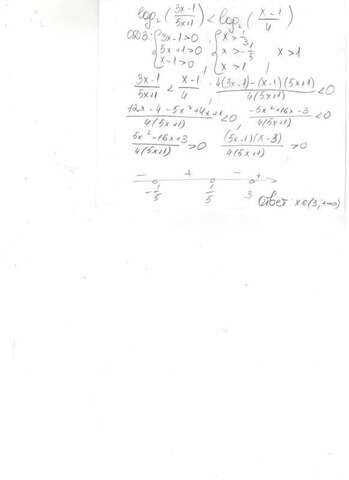 log₂(3x-1/5x+1) < log₂(x-1/4)
ОДЗ: {3x-1>0 {x>1/3
{5x+1>0 {x>-1/5 x>1
{x-1>0 {x>1
3x-1/5x+1 < x-1/4 , 4(3x-1)-(x-1)(5x+1)/4(5x+1) <0
12x-4-5x²+4x+1/4(5x+1) <0 -5x²+16x-3/4(5x+1) <0
5x²-16x+3/4(5x+1) >0 (5x-1)(x-3)/4(5x+1) >0
- + - +
-1/5 1/5 3 Ответ x∈(3,+∞)